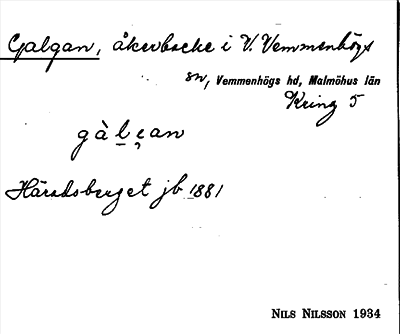 Galgan, åkerbacke i V. Vemmenhögs
sn, Vemmenhögs hd, Malmöhus län
Kring 5
gàl̲ęan
Häradsberget jb 1881
NILS NILSSON 1934